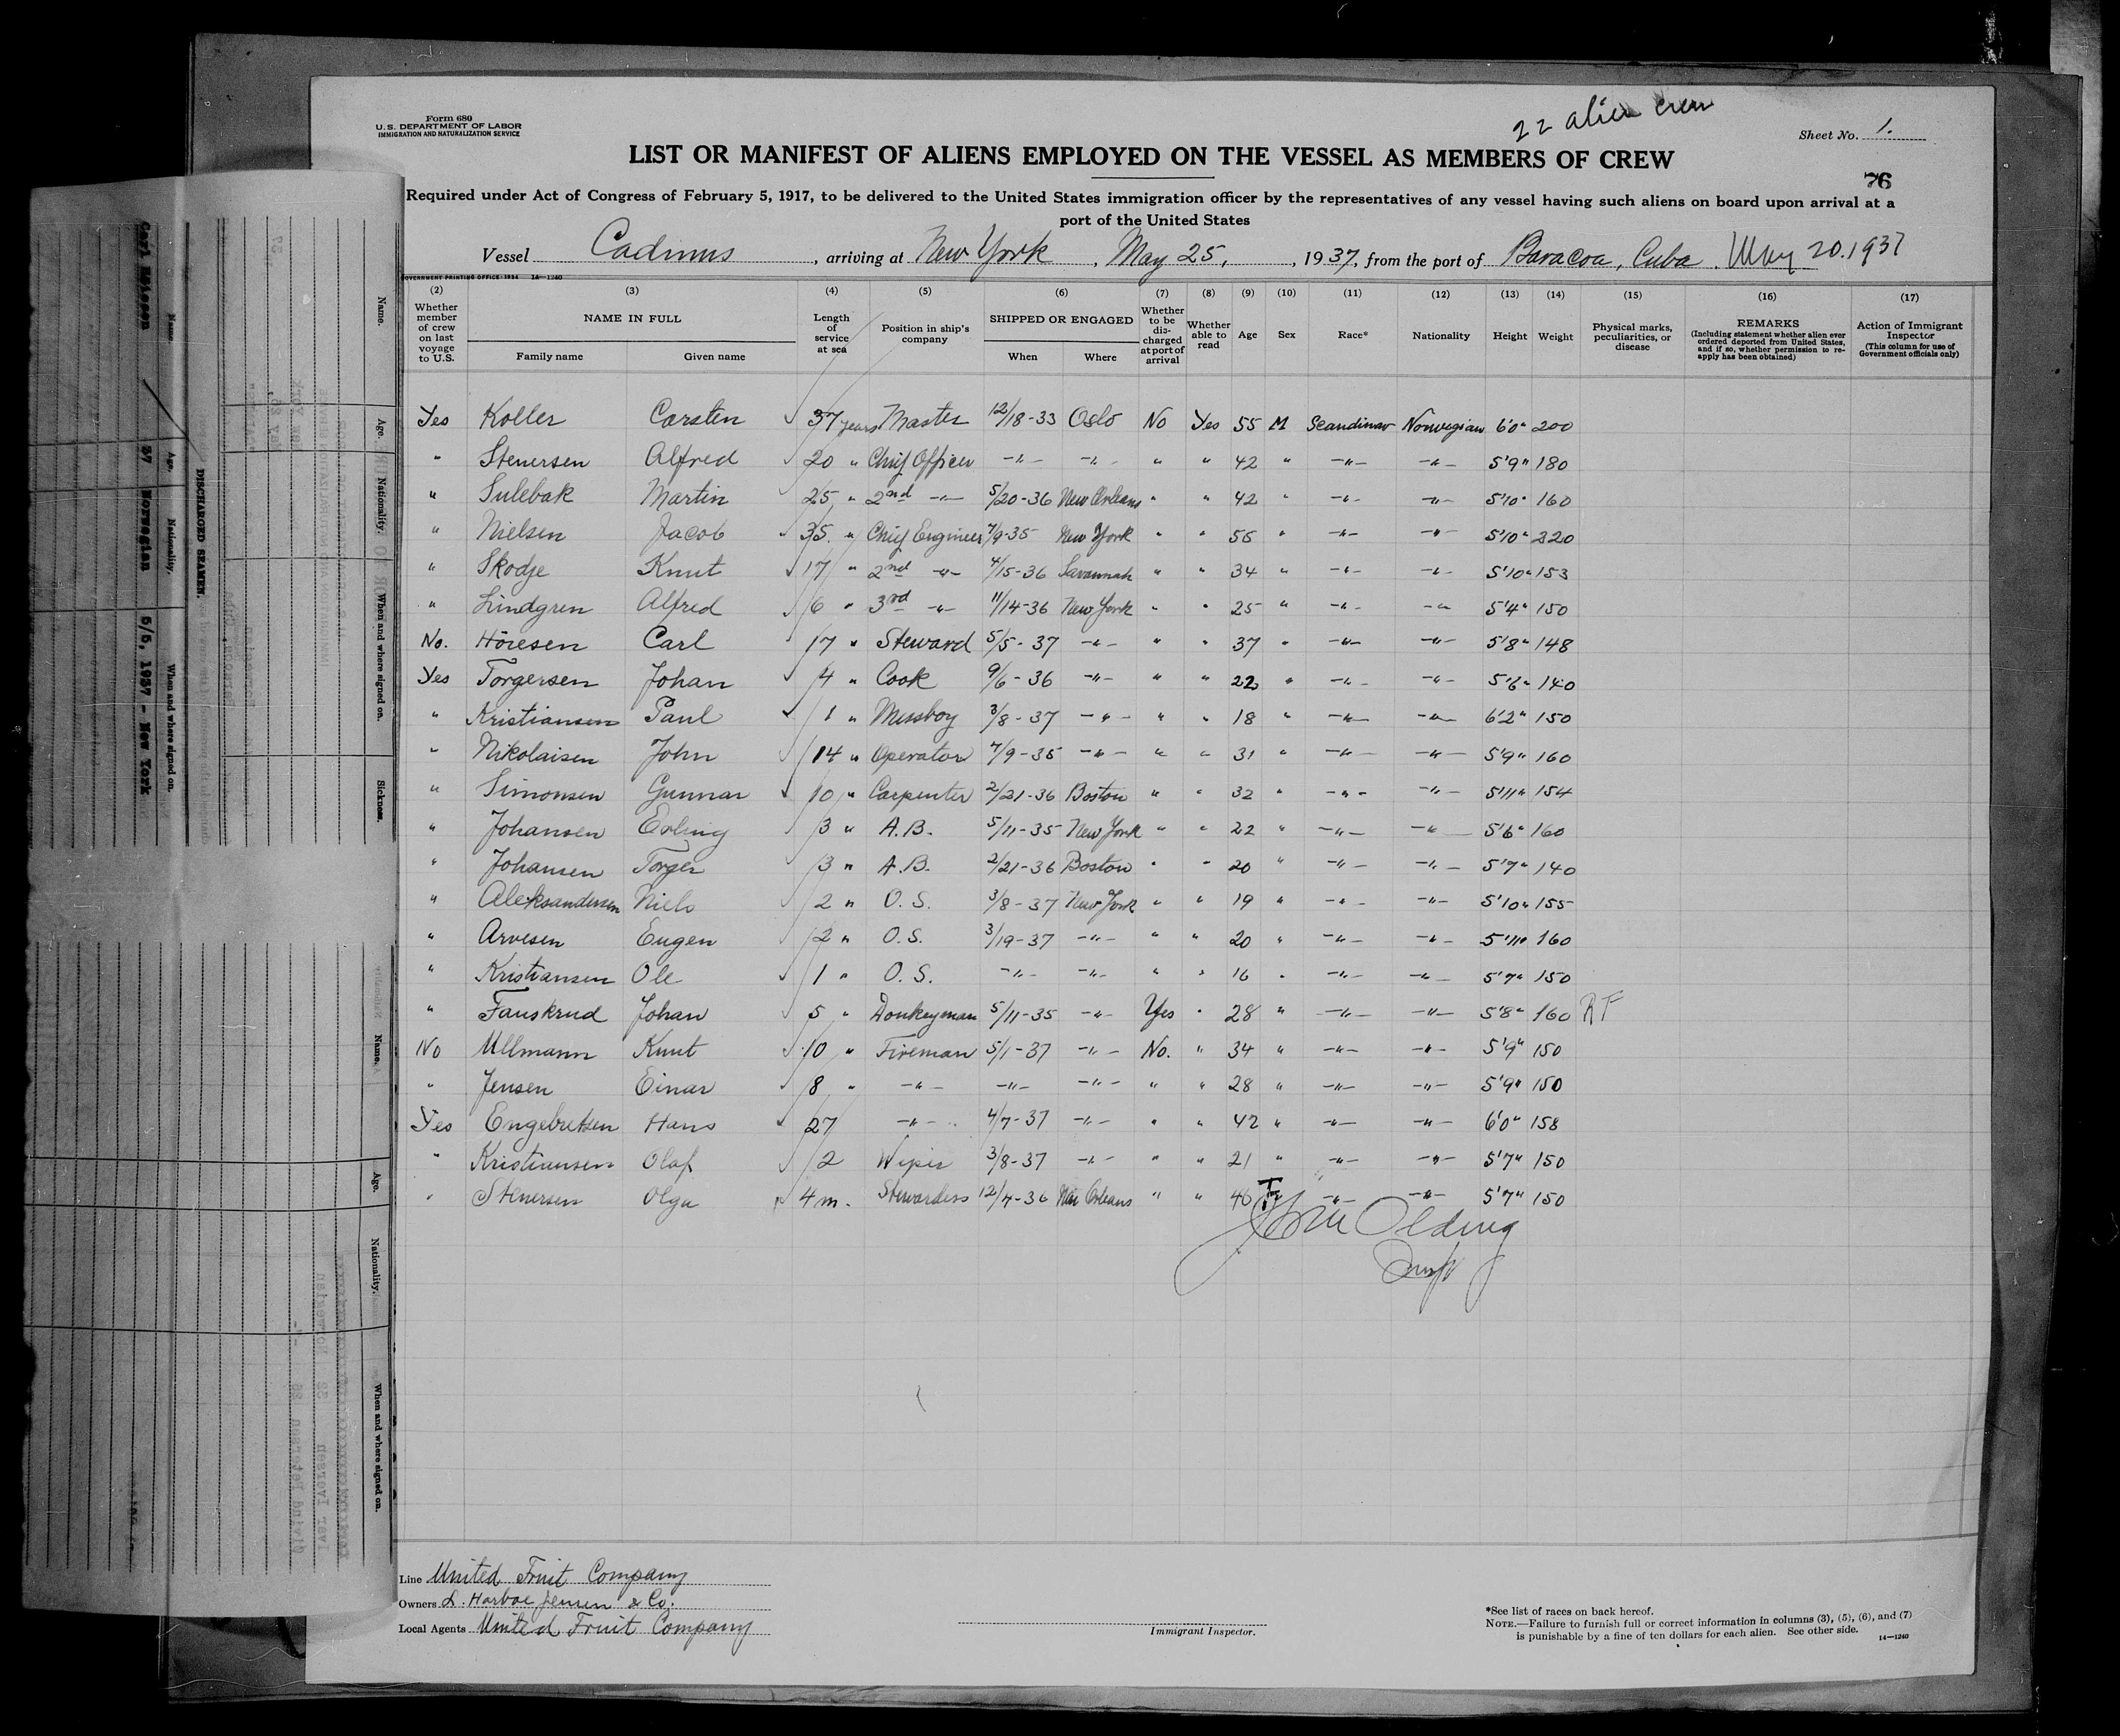 Form 680
U.S. DEPARTMENT OF LABOR
IMMIGRATION AND NATURALIZATION SERVICE
22 alien crew
Sheet No. 1.
LIST OR MANIFEST OF ALIENS EMPLOYED ON THE VESSEL AS MEMBERS OF CREW
76
Required under Act of Congress of February 5, 1917, to be delivered to the United States immigration officer by the representatives of any vessel having such aliens on board upon arrival at a
port of the United States
Vessel Cadmus, arriving at New York, May 25, 1937, from the port of Baracoa, Cuba. May 20. 1937
GOVERNMENT PRINTING OFFICE: 1934 14—1240
(2) (3) (4) (5) (6) (7) (8) (9) (10) (11) (12) (13) (14) (15) (16) (17)
Whether member of crew on last voyage to U.S. NAME IN FULL Family name Given name Length of service at sea Position in ship's company SHIPPED OR ENGAGED When Where Whether to be discharged at port of arrival Whether able to read Age Sex Race* Nationality Height Weight Physical marks, peculiarities, or disease REMARKS (Including statement whether alien ever ordered deported from United States, and if so, whether permission to re-apply has been obtained) Action of Immigrant Inspector (This column for use of Government officials only)
Yes Koller Carsten 37 years Master 12/18-33 Oslo No Yes 55 M Scandinav Norwegian 6'0" 200
" Stenersen Alfred 20 " Chief Officer -"- -"- " " 42 " -"- -"- 5'9" 180
" Sulebak Martin 25 " 2nd -"- 5/20-36 New Orleans " " 42 " -"- -"- 5'10" 160
" Nielsen Jacob 35 " Chief Engineer 7/9-35 New York " " 55 " -"- -"- 5'10" 220
" Skodje Knut 17 " 2nd -"- 4/15-36 Savannah " " 34 " -"- -"- 5'10" 153
" Lindgren Alfred 6 " 3rd -"- 11/14-36 New York " " 25 " -"- -"- 5'4" 150
No. Höiesen Carl 17 " Steward 5/5-37 -"- " " 37 " -"- -"- 5'8" 148
Yes Torgersen Johan 4 " Cook 9/6-36 -"- " " 22 " -"- -"- 5'6" 140
" Kristiansen Paul 1 " Messboy 3/8-37 -"- " " 18 " -"- -"- 6'2" 150
" Nikolaisen John 14 " Operator 7/9-35 -"- " " 31 " -"- -"- 5'9" 160
" Simonsen Gunnar 10 " Carpenter 2/21-36 Boston " " 32 " -"- -"- 5'11" 154
" Johansen Erling 3 " A.B. 5/11-35 New York " " 22 " -"- -"- 5'6" 160
" Johansen Torger 3 " A.B. 2/21-36 Boston " " 20 " -"- -"- 5'7" 140
" Aleksandersen Niels 2 " O.S. 3/8-37 New York " " 19 " -"- -"- 5'10" 155
" Arvesen Eugen 2 " O.S. 3/19-37 -"- " " 20 " -"- -"- 5'11" 160
" Kristiansen Ole 1 " O.S. -"- -"- " " 16 " -"- -"- 5'7" 150
" Fauskrud Johan 5 " Donkeyman 5/11-35 -"- Yes " 28 " -"- -"- 5'8" 160 RF
No Ullmann Knut 10 " Fireman 5/1-37 -"- No. " 34 " -"- -"- 5'9" 150
" Jensen Einar 8 " -"- -"- -"- " " 28 " -"- -"- 5'9" 150
Yes Engebretsen Hans 27 -"- 4/7-37 -"- " " 42 " -"- -"- 6'0" 158
" Kristiansen Olaf 2 Wiper 3/8-37 -"- " " 21 " -"- -"- 5'7" 150
" Stenersen Olga 4 m. Stewardess 12/7-36 New Orleans " " 46 F -"- -"- 5'7" 150
Olding
Insp
Line United Fruit Company
Owners L. Harboe Jensen & Co.
Local Agents United Fruit Company
Immigrant Inspector.
*See list of races on back hereof.
NOTE.—Failure to furnish full or correct information in columns (3), (5), (6), and (7)
is punishable by a fine of ten dollars for each alien. See other side.
14—1240
DISCHARGED SEAMEN.
Name. Age. Nationality. When and where signed on.
Carl Nielsen 37 Norwegian 5/5, 1937 - New York
Name. Age. Nationality. When and where signed on. Sickness.
Name. Age. Nationality. When and where signed on.